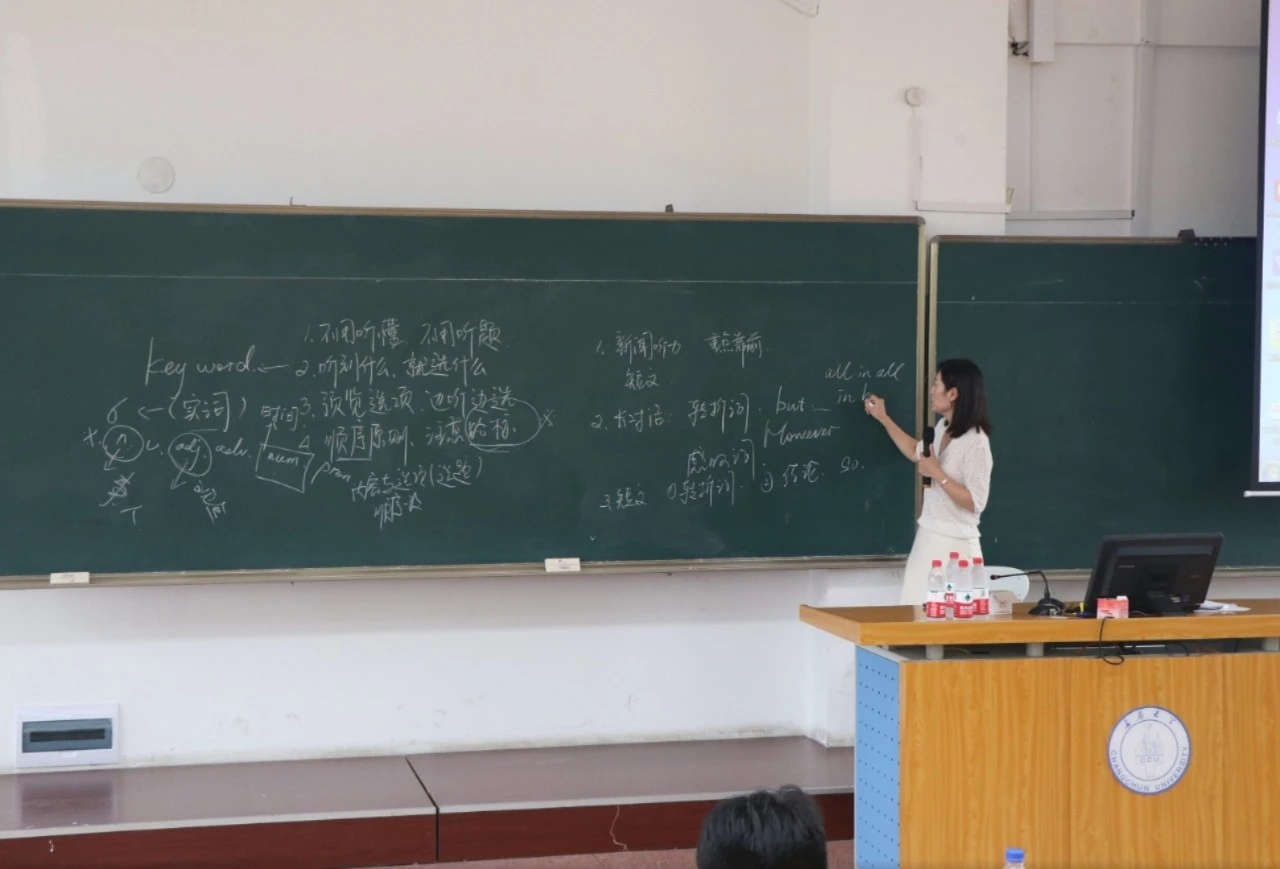 1. 不用听懂 不用听题
key word ← 2. 听到什么, 就选什么
6 ← (实词) 时间 3. 预览选项, 边听边选
n. v. adj. adv. num pron 顺序原则, 注意
内容与选项(选题)
顺序
1. 新闻听力 重点靠前.
短文
2. 长对话: 转折词. but
However
all in all
in b
3. 短文 ①转折词. ② 结论. so.
长春大学
CHANGCHUN UNIVERSITY
CCU